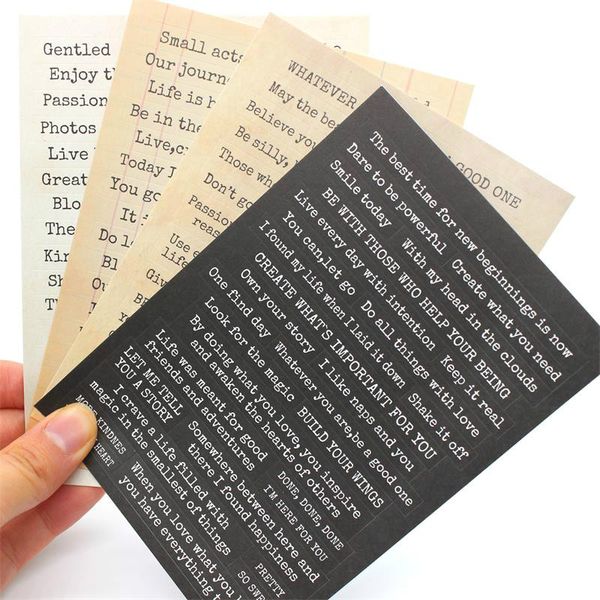 Gentled
Enjoy th
Passion
Photos
Live
Great
Blo
The
Kin
Sh
Ty
Small acts
Our journ
Life is h
Be in the
Live,
Today J
You go
Do
Use
life
Giv
WHATEVER
GOOD ONE
May the be
Believe you
Be silly,
Those wh
Don't go
Passion
reas
The best time for new beginnings is now
Dare to be powerful
Create what you need
Smile today
With my head in the clouds
BE WITH THOSE WHO HELP YOUR BEING
Live every day with intention
Keep it real
You can, let go
Do all things with love
I found my life when I laid it down
Shake it off
CREATE WHAT'S IMPORTANT FOR YOU
Own your story
I like naps and you
One find day
Whatever you are, be a good one
Look for the magic
BUILD YOUR WINGS
By doing what you love, you inspire
and awaken the hearts of others
Life was meant for good
friends and adventures
DONE, DONE, DONE
I'M HERE FOR YOU
LET ME TELL
YOU A STORY
Somewhere between here and
there I found happiness
PRETTY
I crave a life filled with
magic in the smallest of things
SO SWE
KINDNES
HEART
When you love what you
you have everything